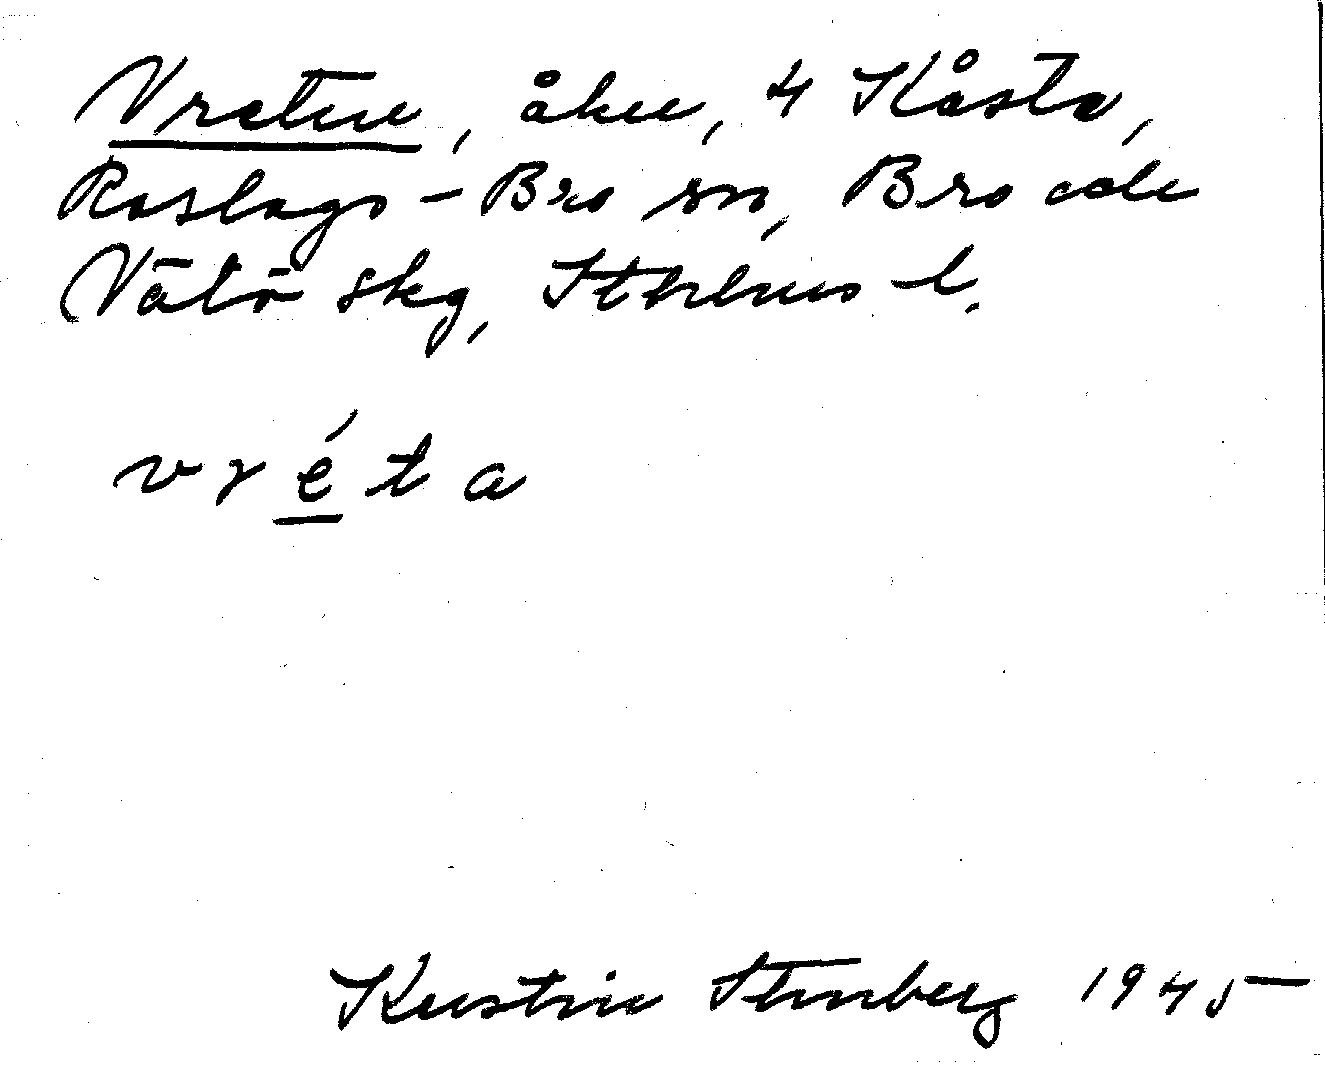 Vreten, åker, 4 Kåsta,
Roslags-Bro sn, Bro och
Vätö skg, Sthlms l.
v r é t a
Kerstin Stenberg 1945